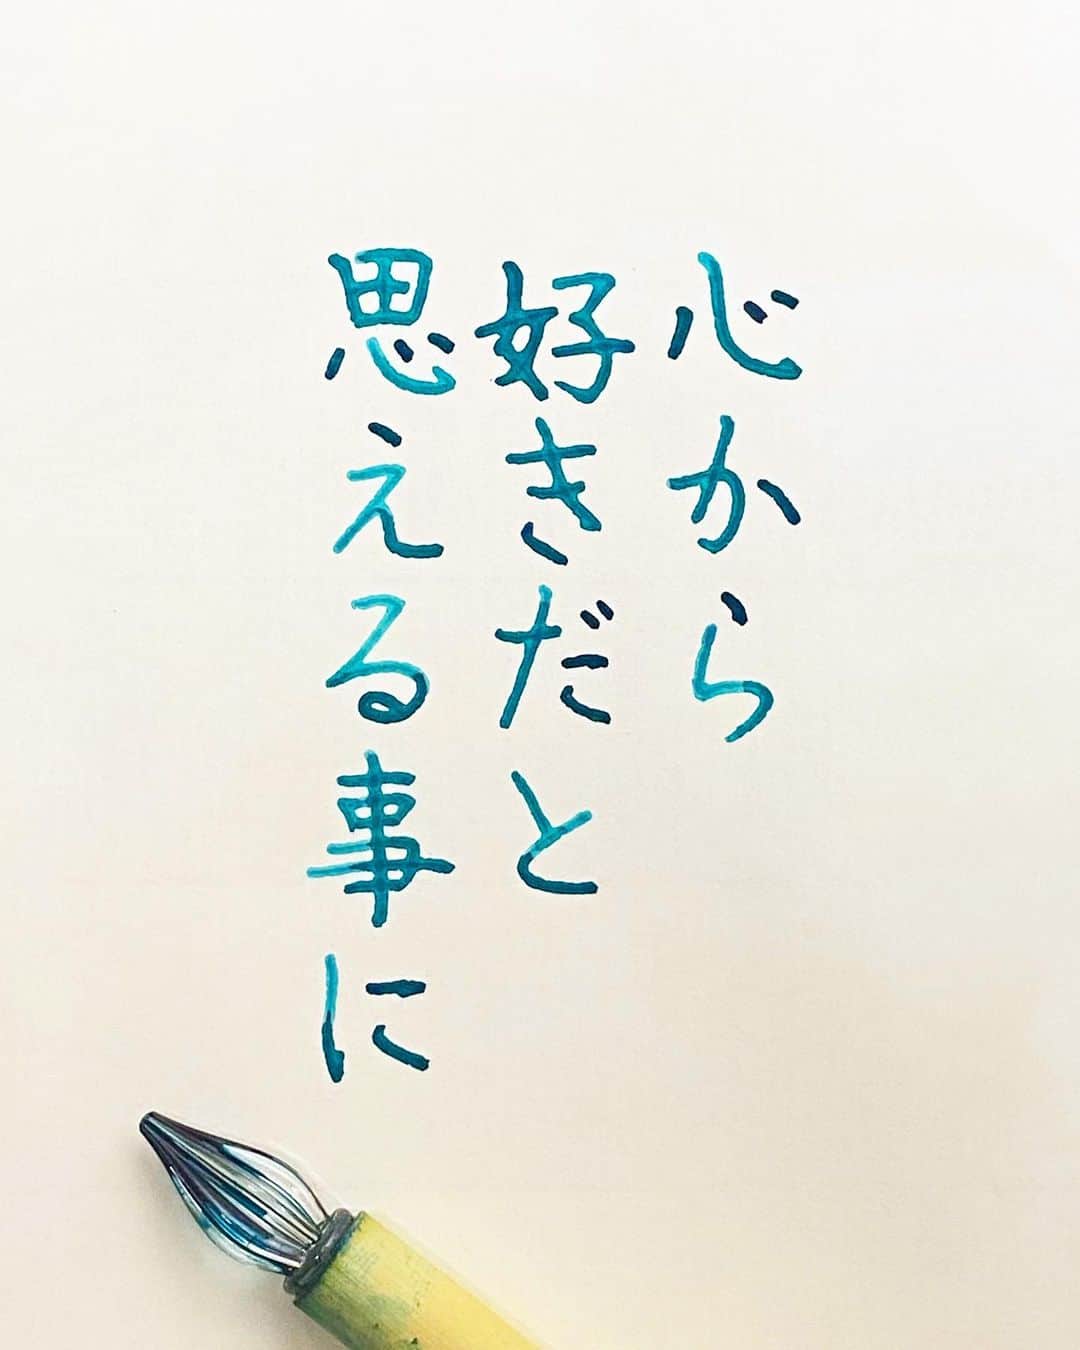 心から
好きだと
思える事に